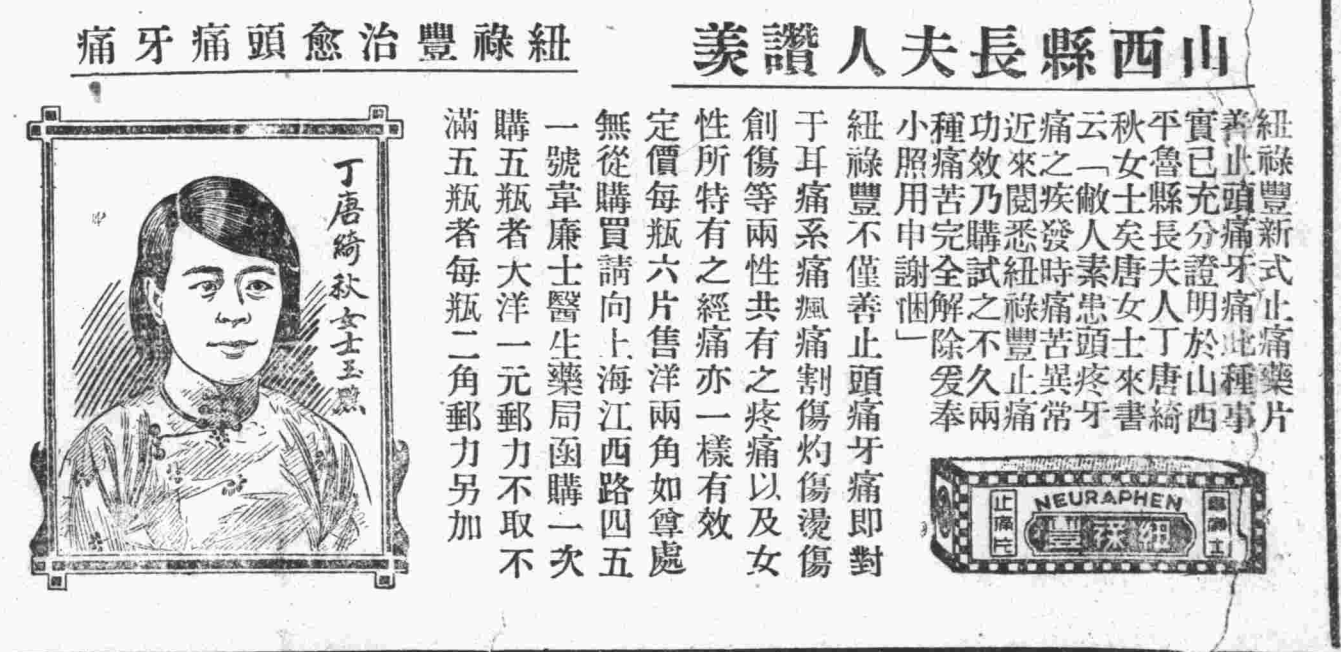 山西縣長夫人讚羡
紐祿豐治愈頭痛牙痛
紐祿豐新式止痛藥片
善止頭痛牙痛此種事
實已充分證明於山西
平魯縣長夫人丁唐綺
秋女士矣唐女士來書
云「敝人素患頭疼牙
痛之疾發時痛苦異常
近來閱悉紐祿豐止痛
功效乃購試之不久兩
種痛苦完全解除爰奉
小照用申謝悃」
紐祿豐不僅善止頭痛牙痛即對
于耳痛系痛瘋痛割傷灼傷燙傷
創傷等兩性共有之疼痛以及女
性所特有之經痛亦一樣有效
定價每瓶六片售洋兩角如尊處
無從購買請向上海江西路四五
一號韋廉士醫生藥局函購一次
購五瓶者大洋一元郵力不取不
滿五瓶者每瓶二角郵力另加
丁唐綺秋女士玉照
NEURAPHEN
紐祿豐
止痛片